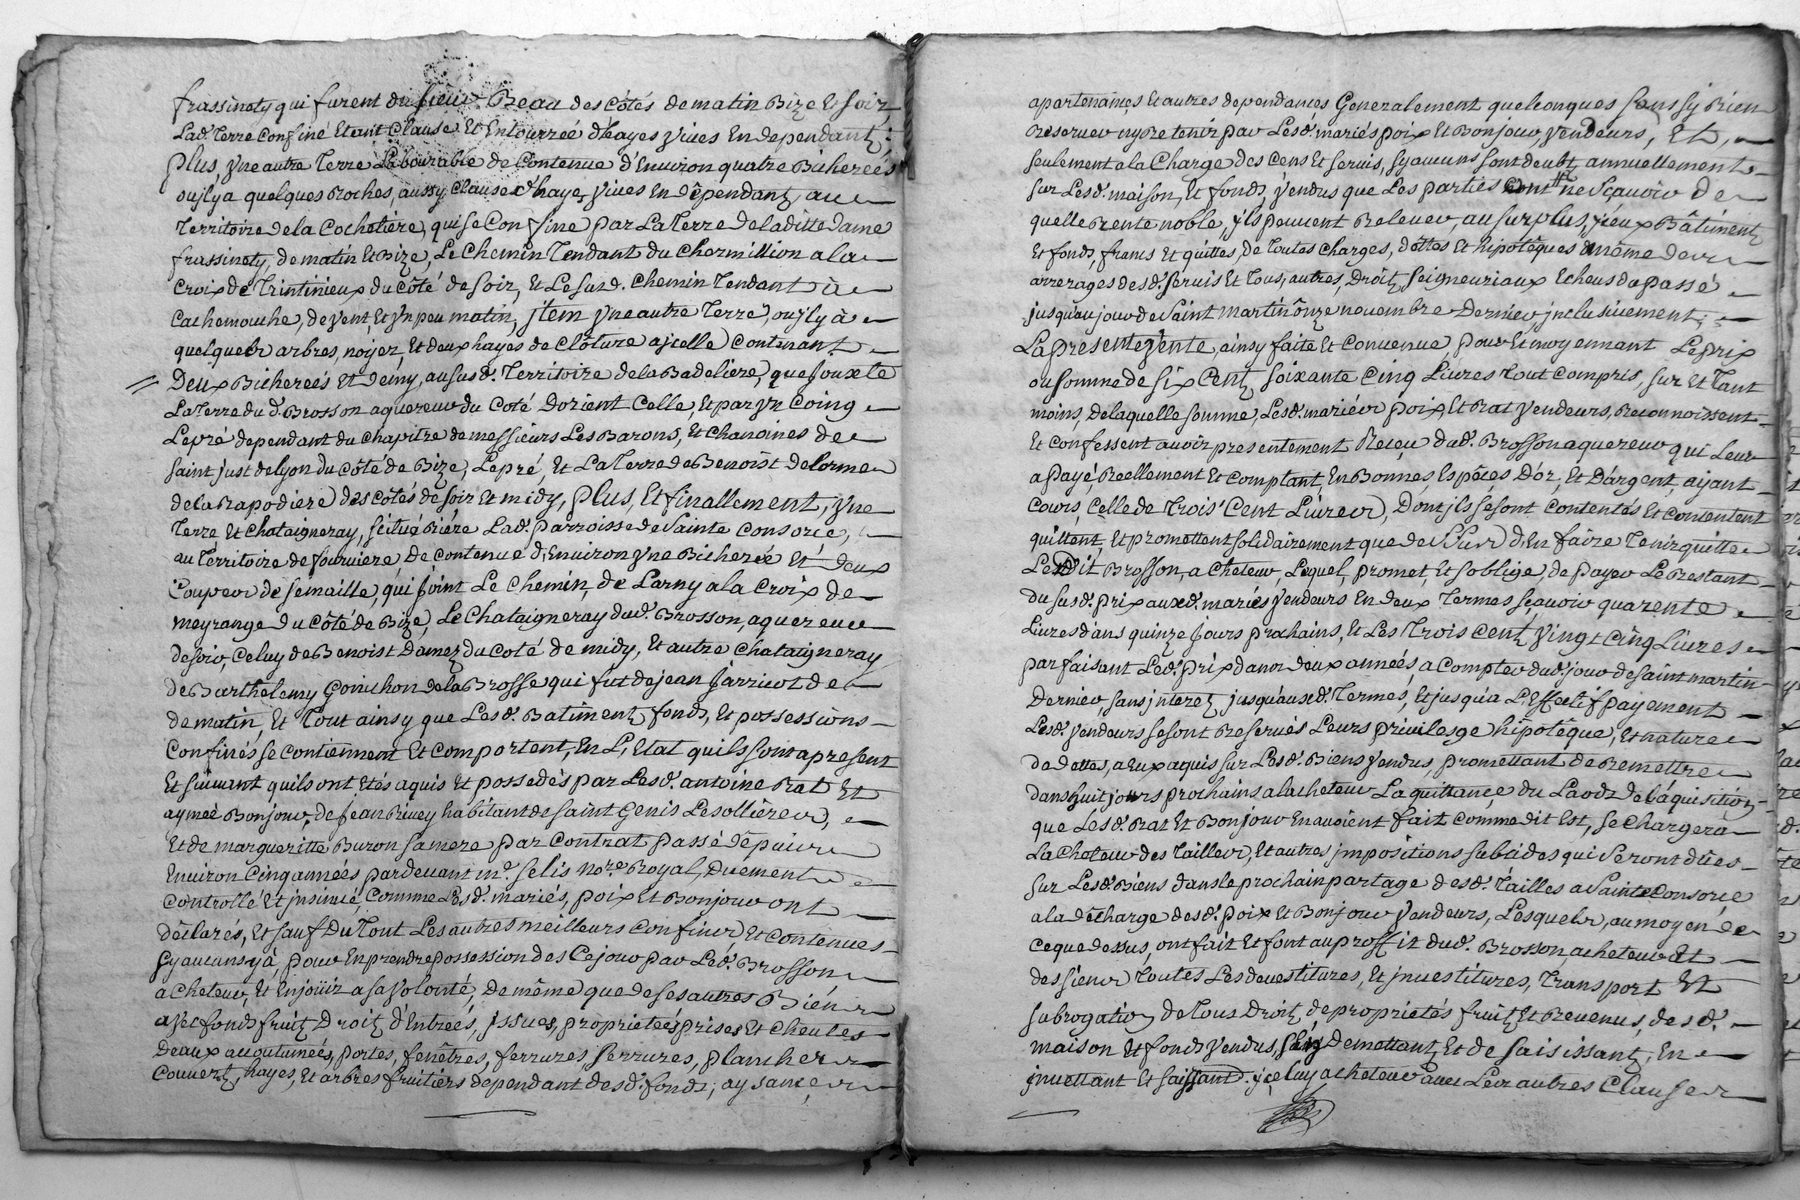 frassinety qui furent du sieur Beau des côtés de matin Bize et soir,
Lad. Terre confiné Etant Clause et Entourreé d'hayes vives En dependant;
Plus, yne autre Terre Labourable de Contenue d'Environ quatre Bichereés
ou jl y a quelques Roches, aussy Clause d'hayes vives En dêpendant, au
Territoire de la Cochetiere, qui se Confine par La Terre de la ditte dame
frassinety, de matin et Bize, Le Chemin Tendant du Chermillion a la
Croix de Trintinieux du Côté de soir, et Le susd. Chemin Tendant à
Cachemouche, de vent, et yn peu matin, jtem yne autre Terre, ou jl y à
quelques arbres, noyer, et deux hayes de Clôture a jcelle Contenant
Deux Bichereés et demy, au susd. Territoire de la Badeliere, que Jouxte
La Terre du d. Brosson aquereur du Coté Dorient Celle, et par yn Coing
Le pré dependant du Chapitre de messieurs Les Barons, et Chanoines de
saint just de Lyon du Côté de Bize, Le pré, et La Terre de Benoist delorme
de la Rapodiere des Côtés de soir et midy, Plus, et finallement, yne
Terre et Chataigneray, scitué Riére Lad. parroisse de Sainte Consorce,
au Territoire de fourviere De contenue d'Environ yne Bicherée et deux
Coupes de semaille, qui Joint Le Chemin, de Larny a la Croix de
meyrange du Côté de Bize, Le Chataigneray dud. Brosson, aquereur
de soir, Celuy de Benoist Damez du Coté de midy, et autre Chataigneray
de Barthelemy Gonichon de la Brosse qui fut de jean Jarricot de
de matin, et Tout ainsy que Lesd. Batiments fonds, et possessions
Confinés se contiennent et comportent, En L'Etat quils sont apresent
et suivant quils ont Etés aquis et possedés par Lesd. antoine Rat et
aymeé Bonjour, de jean Rivey habitant de saint Genis Lesollieres,
et de margueritte Buron sa mere par Contrat passé dêpuis
Environ Cinq annéés pardevant me. selis nore. Royal, duement
Controllé et jnsinué, Comme Lesd. mariés, poix et Bonjour ont
dèclarés, et sauf du Tout Les autres meilleurs confiner, et contenues
sy aucuns y a, pour En prendre possession des Cejour par Led. Brosson
acheteur, et Enjoüir a sa volonté, de même que de ses autres Biéns
avec fonds fruits Droits d'Entreés, jssues, proprieteés prises et cheutes
Deaux accoutumeés, portes, fenêtres, ferrures, serrures, plancher
couvert, hayes, et arbres fruitiers dependant desd. fonds, aysances
apartenainces et autres dependances Generalement quelconques sans sy Rien
Réserver ny Retenir par Lesd. mariés poix et Bonjour, vendeurs, Et,
seulement a la Charge des Cens et servis, sy aucuns sont deubt annuellement
sur Lesd. maison, et fonds vendus que Les parties ont ne sçavoir de
quelle Rente noble, jls peuvent Relever, au surplus, jéeux Bâtiments
Et fonds, francs et quittes, de toutes charges, dêttes et hipotêques même de
arrerages desd. servis et Tous, autres, Droits seigneuriaux Echeus du passé
jusquau jour de saint martin ônze novembre dernier jnclusivement;
La presente vente, ainsy faite et Convenue, pour et moyennant Le prix
ou somme de six Cent soixante Cinq Livres Tout compris, sur et Tant
moins, de laquelle somme, Lesd. mariér poix et Rat vendeurs, Reconnoissent
Et confessent avoir presentement Reçeu dud. Brosson aquereur qui Leur
a payé, Reellement et Comptant En Bonnes Espêces D'or, et D'argent, ajant
Cours, Celle de Trois Cent Livres, Dont jls se sont contentés et contentent
quittent, et promettent solidairement que de L'un d'En faire Tenir quitte
Ledit Brosson, acheteur, Lequel, promet, et soblige, de payer Le Restant
Du susd. prix auxd. mariés vendeurs En deux Termes sçavoir quarente
Livres dans quinze Jours prochains, et Les Trois Cent vingt Cinq Livres
parfaisant Led. prix dans deux anneés, a Compter dud. jour de saint martin
Dernier, sans jnterez, jusquausd. Termes, et jusquà L'Effectif payement
Lesd. vendeurs se sont Reservés Leurs privilesge hipôtêque, et nature
de dettes, a Eux aquis sur Lesd. Biens vendus, promettant de Remettre
dans huit jours prochains a lacheteur La quittance du Laods de L'aquisition
que Lesd. Rat et Bonjour En avoient fait Comme dit Est, se Chargera
La cheteur des Tailles, et autres jmpositions subcides qui seront dües
sur Lesd. Biens dans le prochain partage desd. Tailles a Sainte Consorce
a la dêcharge desd. poix et Bonjour vendeurs, Lesquels, au moyen de
ce que dessus, ont fait et font au proffit dud. Brosson acheteur et
des siens Toutes Les devestitures, et jnvestitures, Transport et
subrogation de Tous Droits de proprietés fruits et Revenus, desd.
maison et fonds vendus, sén Demettant, et de saisissant, En
jnvettant et saisissant jceluy acheteur avec Les autres Clauses